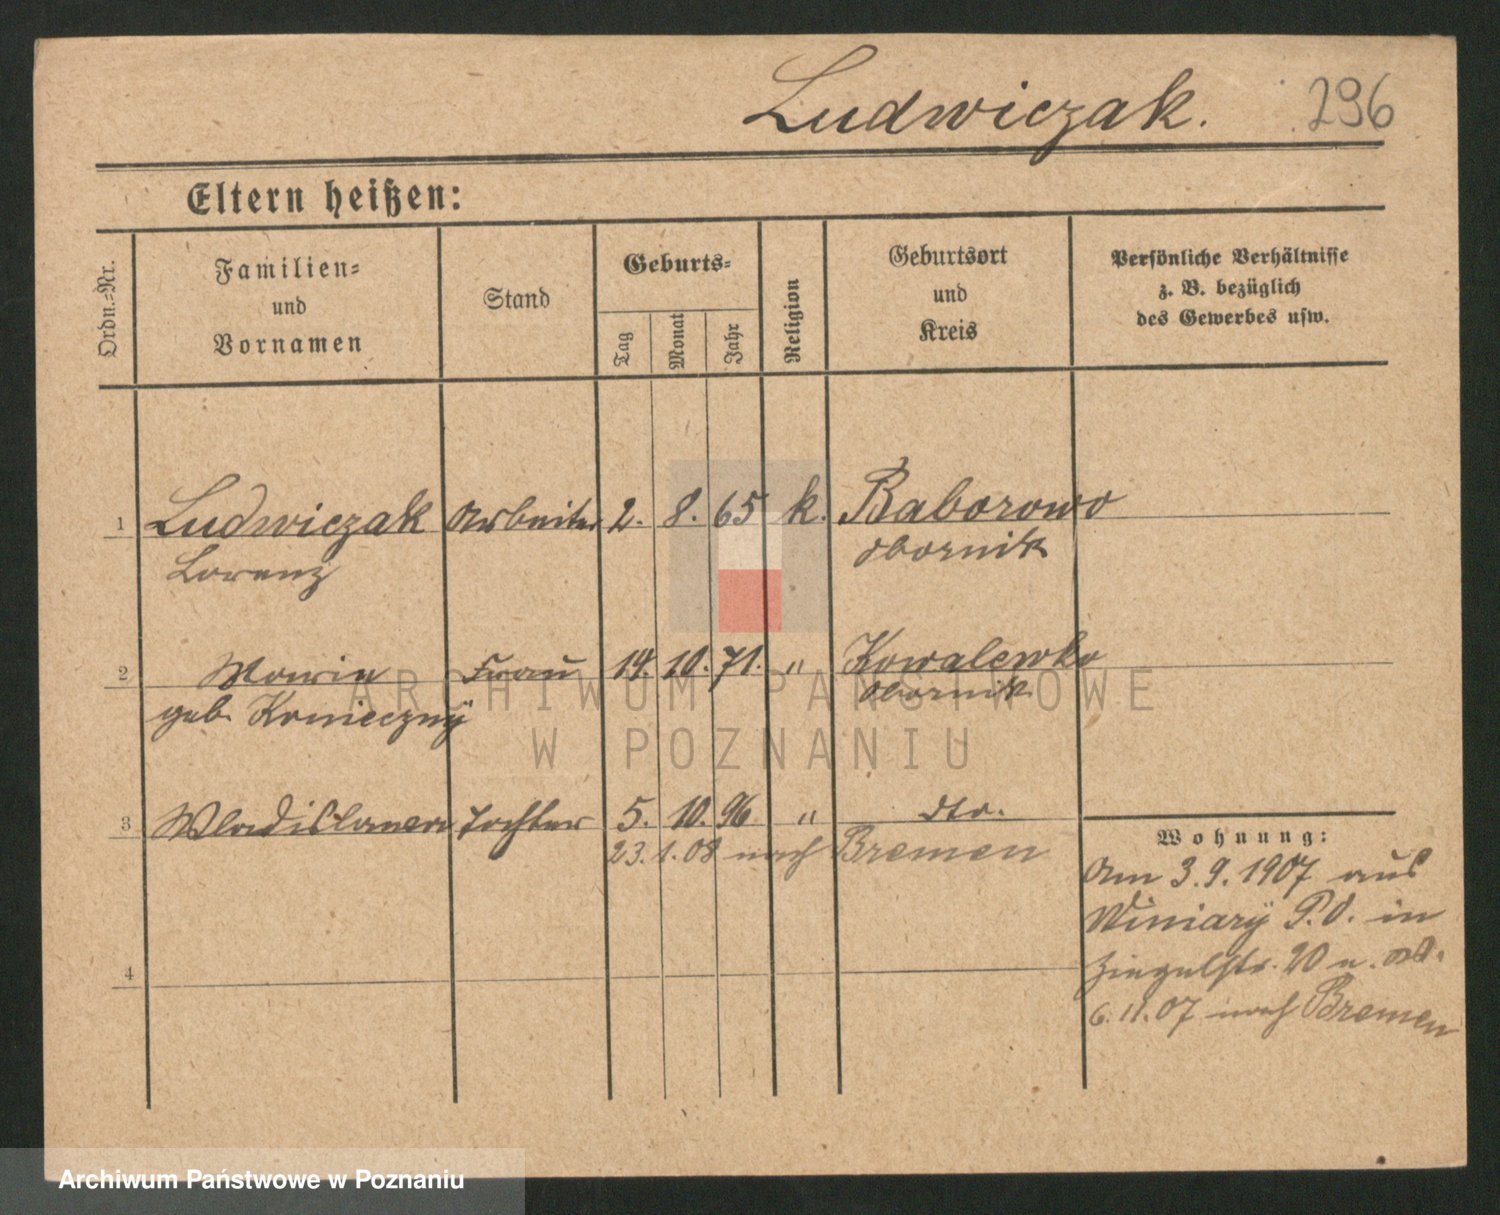 Ludwiczak. 296
Eltern heißen:
Ordn.=Nr.
Familien=
und
Vornamen
Stand
Geburts=
Tag
Monat
Jahr
Religion
Geburtsort
und
Kreis
Persönliche Verhältnisse
z. B. bezüglich
des Gewerbes usw.
1 Ludwiczak Arbeiter 2. 8. 65 k. Baborowo
Lorenz Obornik
2 Maria Frau 14. 10. 71. " Kowalewko
geb. Konieczny Obornik
3 Wladislawa Tochter 5. 10. 96 " dto.
23. 1. 08 nach Bremen
4
Wohnung:
Am 3.9.1907 aus
Winiary P.O. in
Ziegelstr. 20 u.
6.11.07 nach Bremen
ARCHIWUM PAŃSTWOWE
W POZNANIU
Archiwum Państwowe w Poznaniu